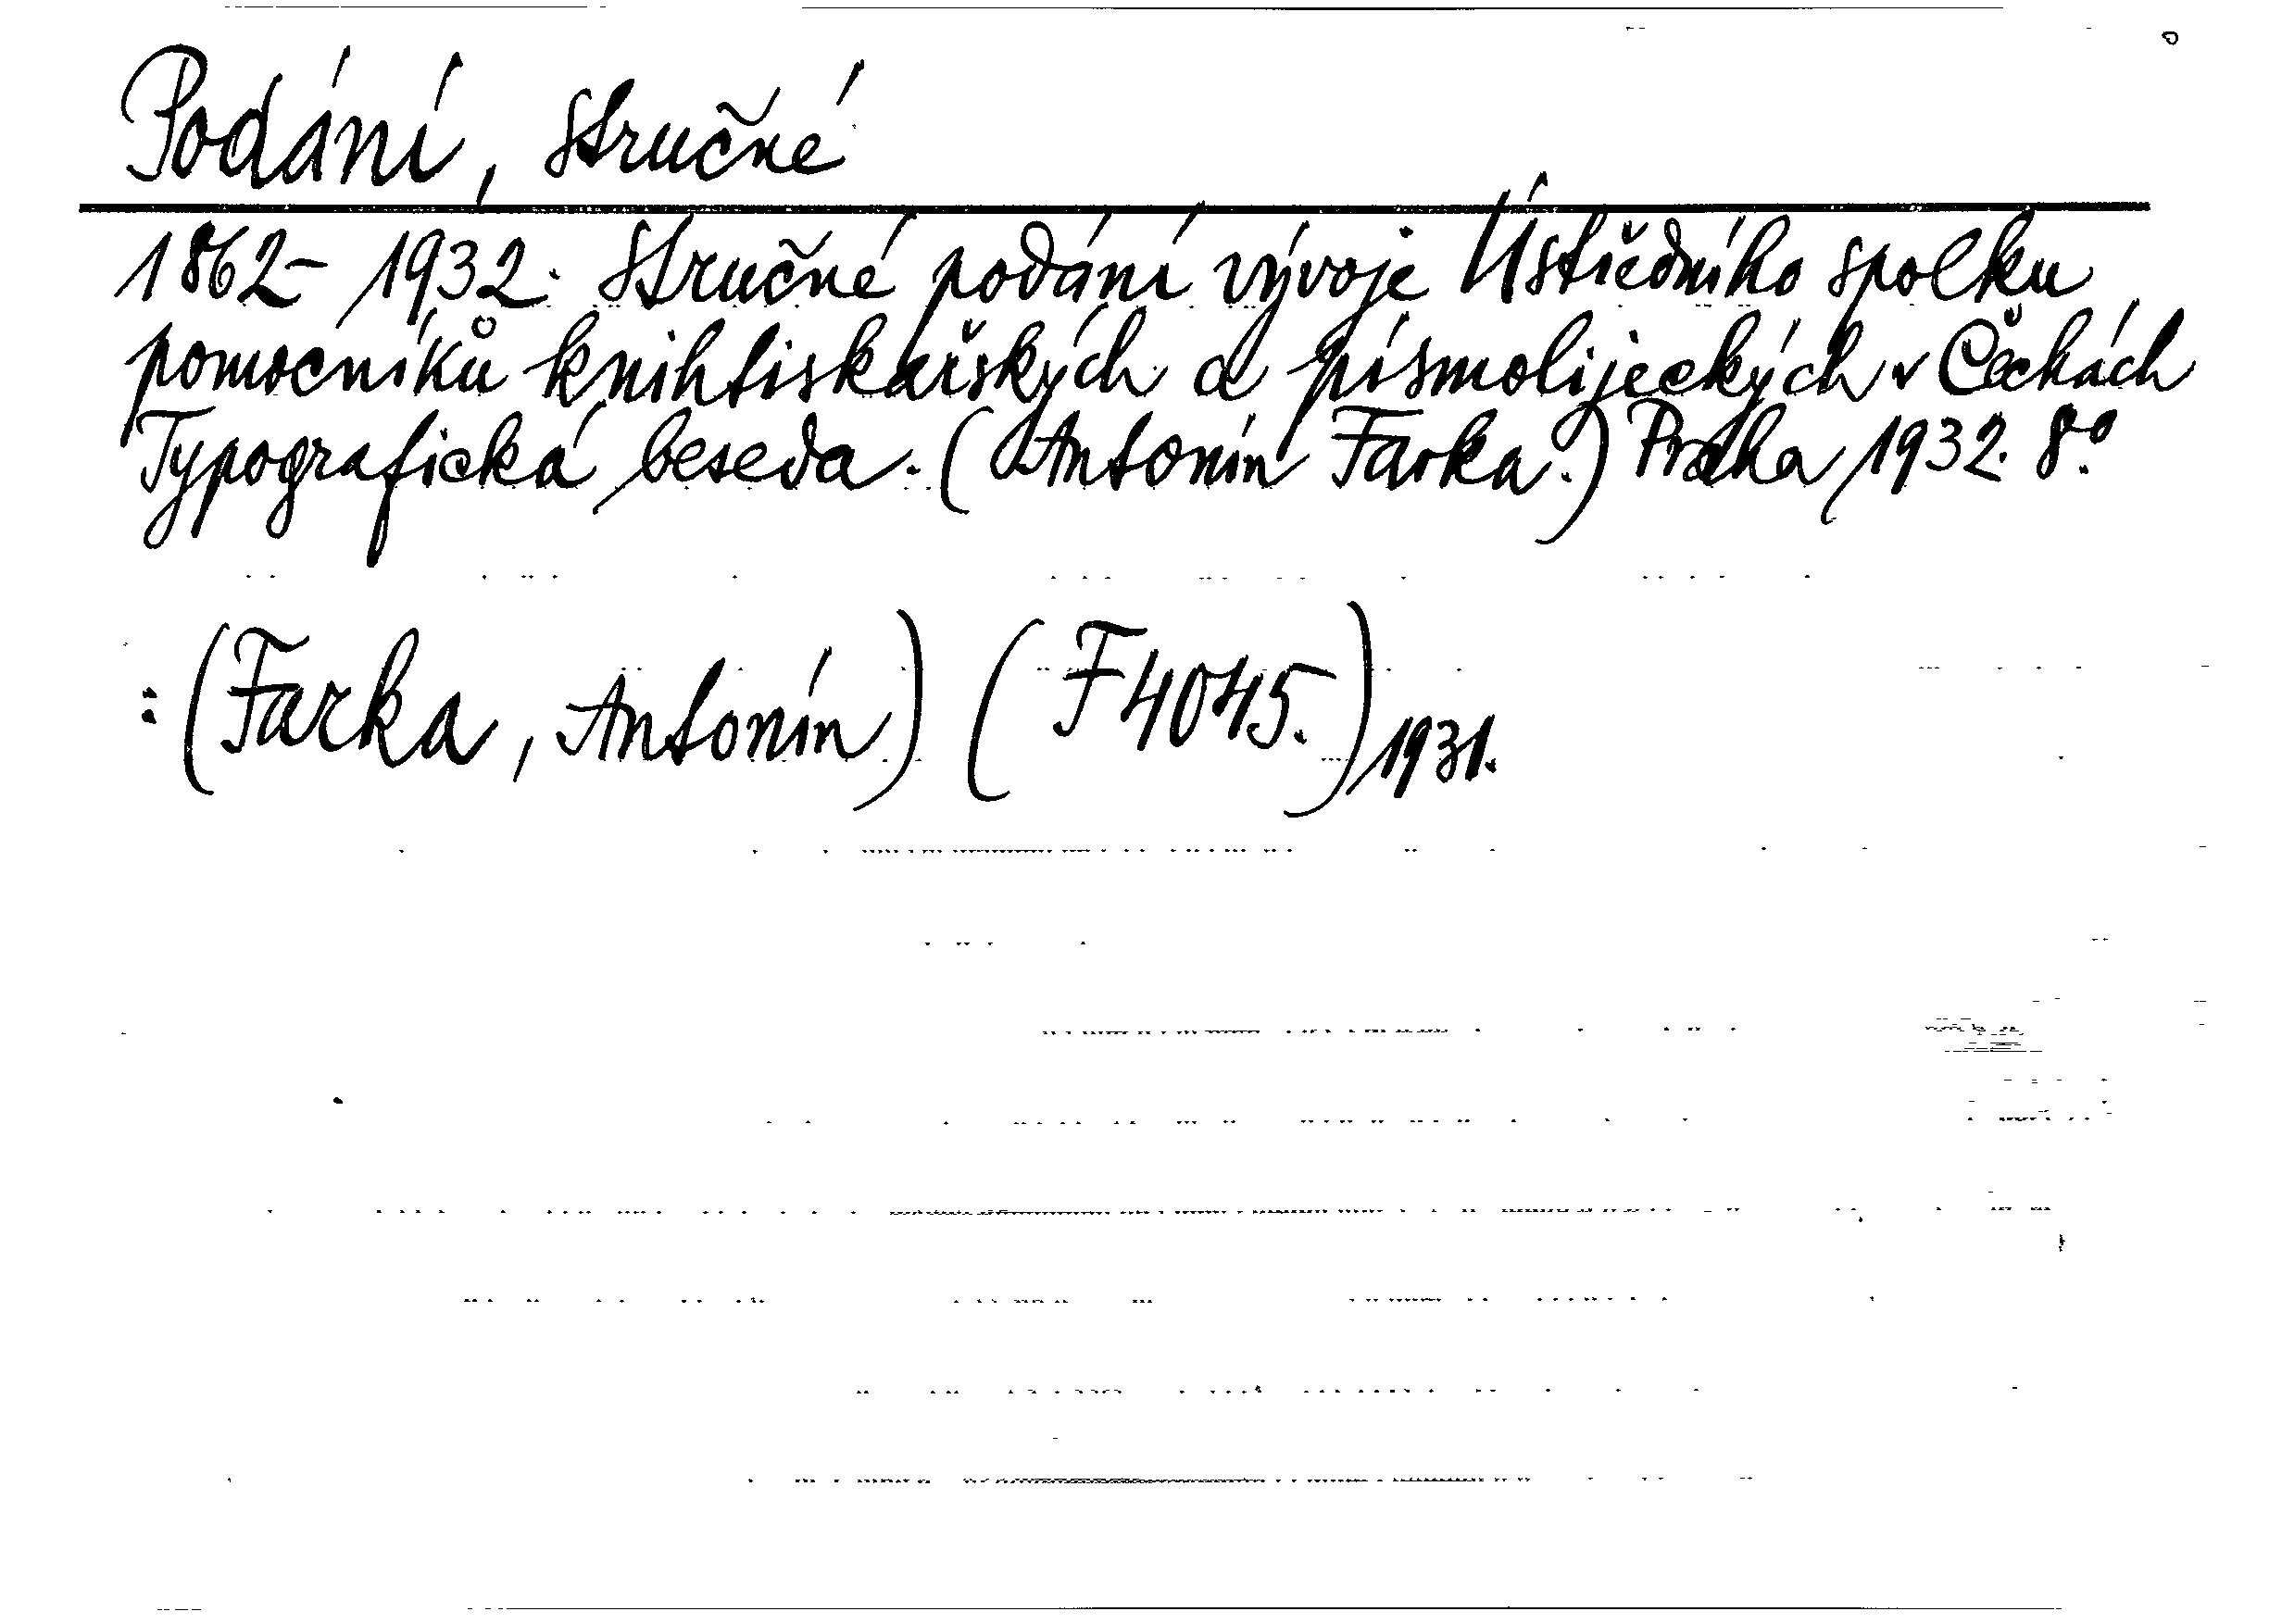 Podání, stručné
1862-1932. Stručné podání vývoje Ústředního spolku
pomocníků knihtiskařských a písmolijeckých v Čechách
Typografická beseda. (Antonín Farka.) Praha, 1932. 8.°
: (Farka, Antonín) (F4045.) 1931.